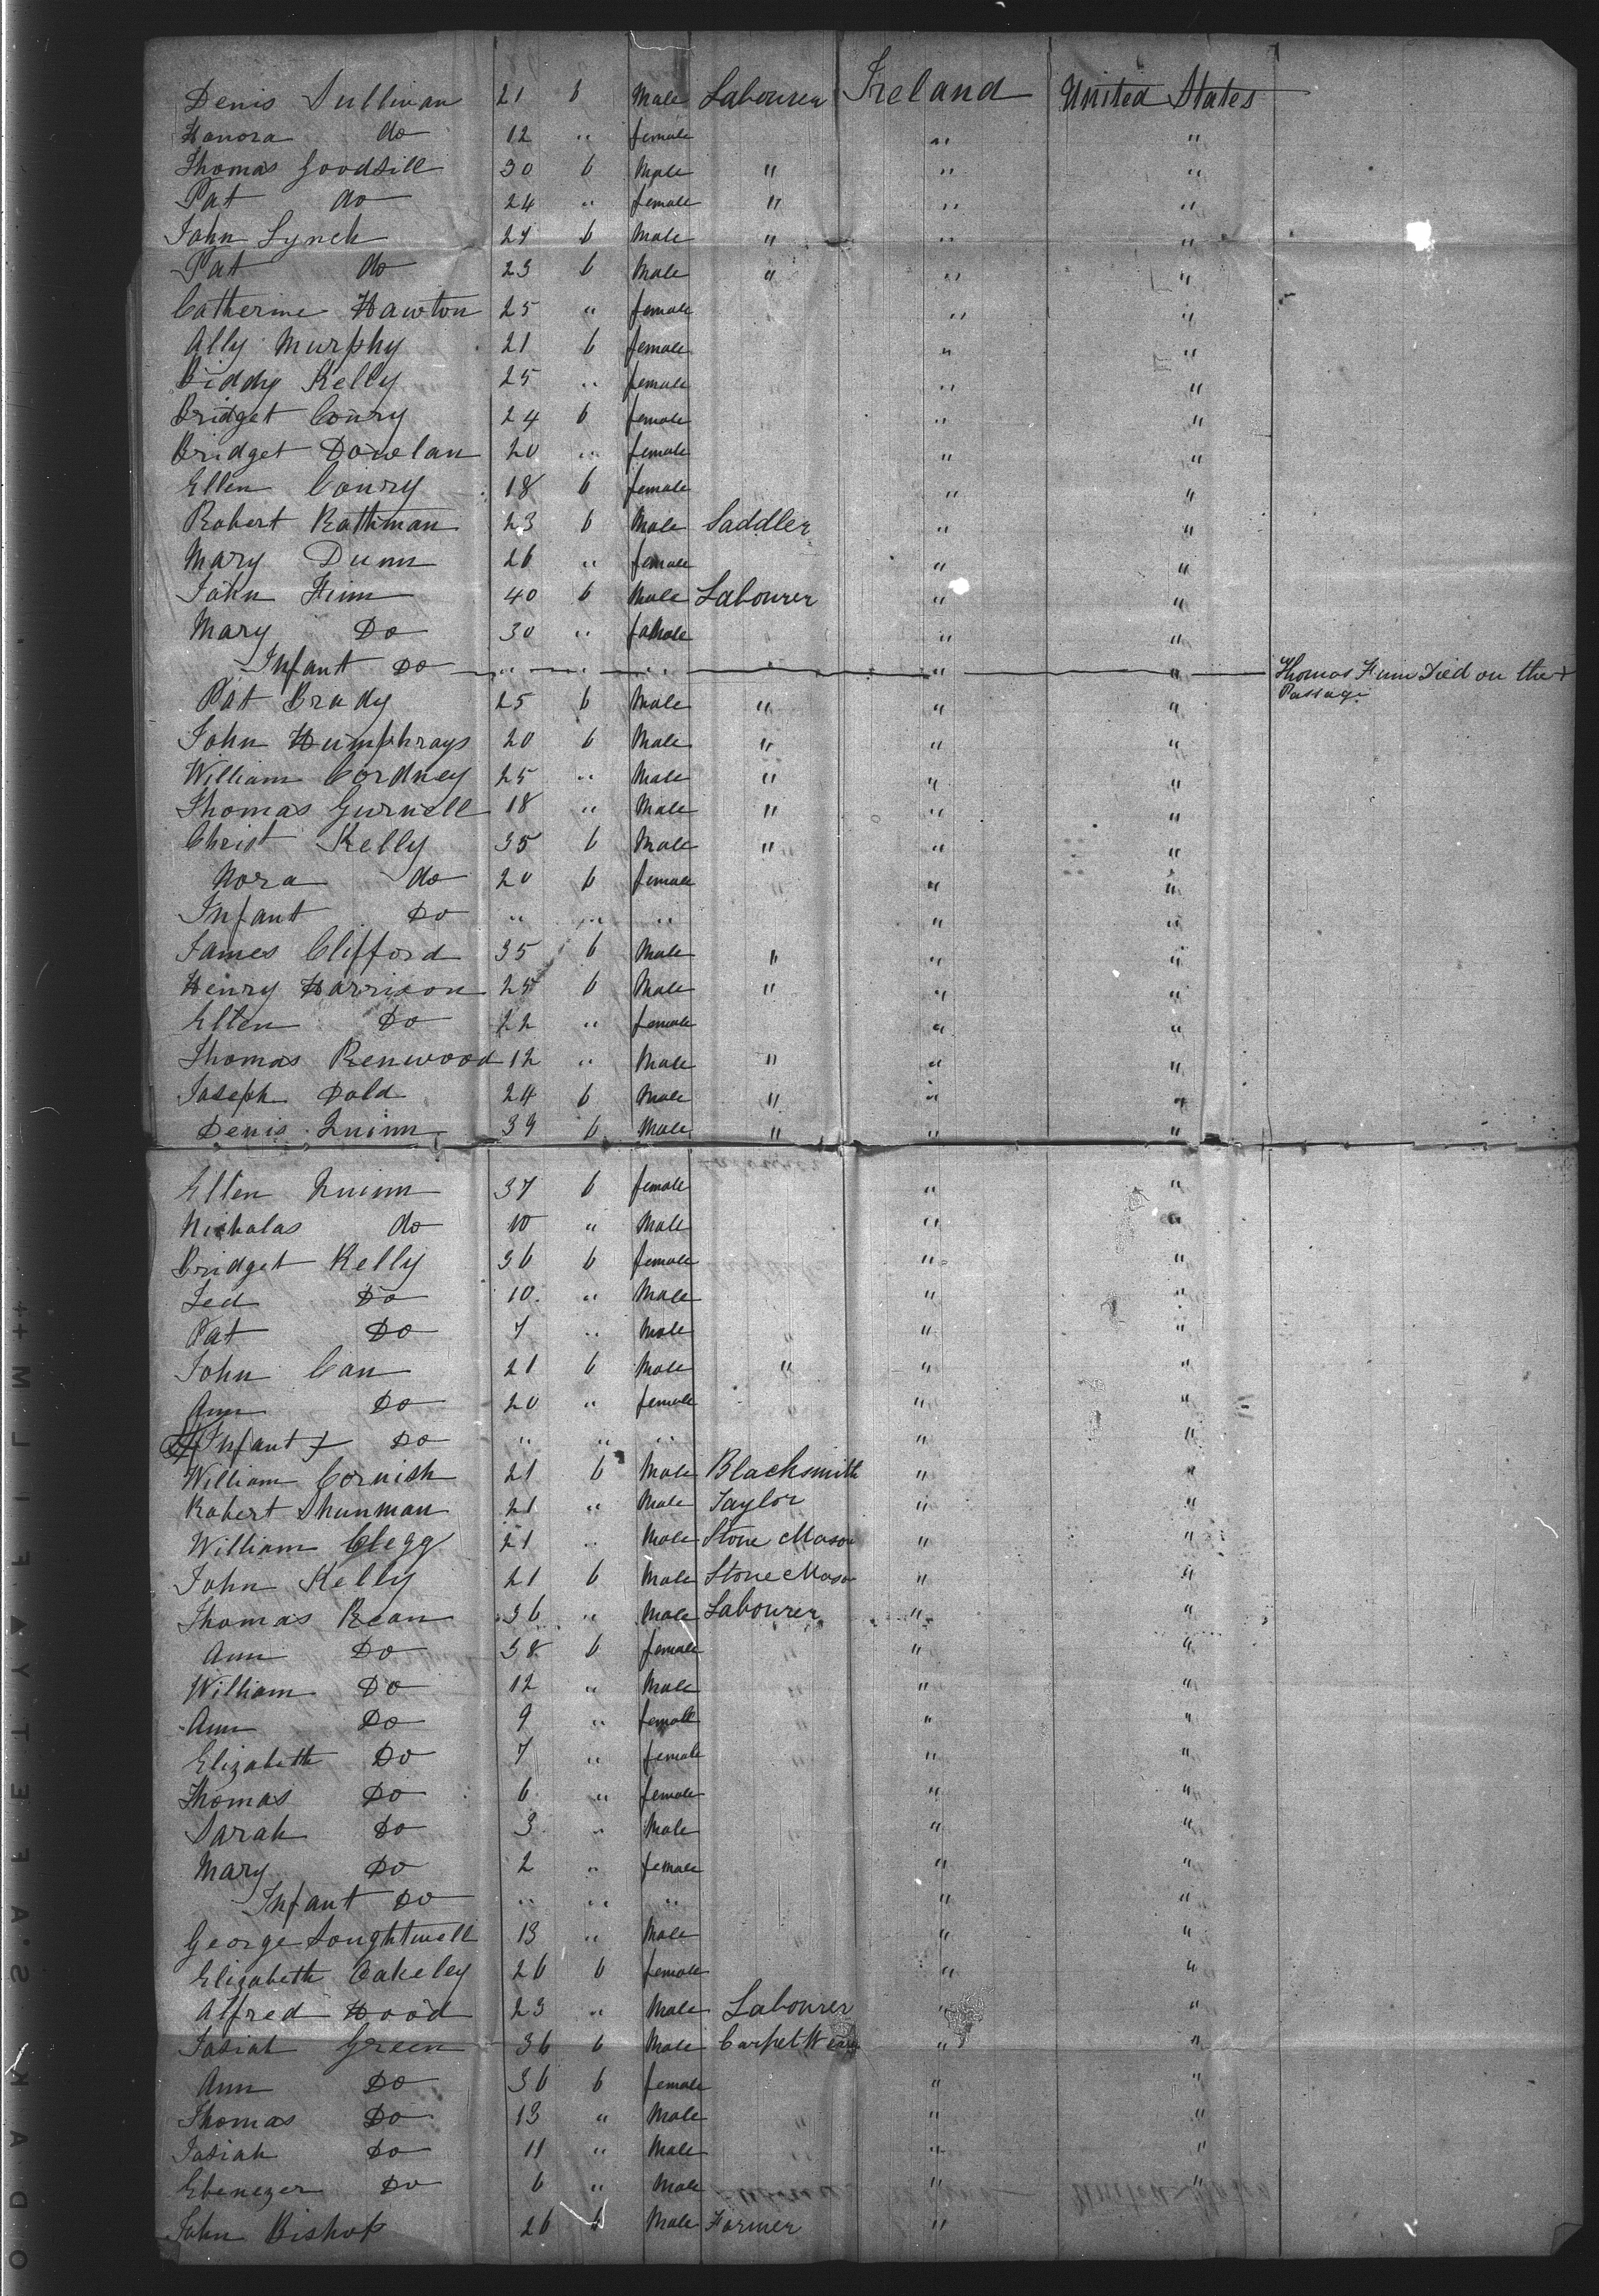 Denis Sullivan 21 6 Male Labourer Ireland United States
Honora do 12 " female " "
Thomas Goodsill 30 6 Male " " "
Pat do 24 " female " " "
John Lynch 24 6 Male " " "
Pat do 23 6 Male " " "
Catherine Hawton 25 " female " "
Ally Murphy 21 6 female " "
Biddy Kelly 25 " female " "
Bridget Conry 24 6 female " "
Bridget Dowlan 20 " female " "
Ellen Conry 18 6 female " "
Robert Rathman 23 6 Male Saddler " "
Mary Dunn 26 " female " "
John Finn 40 6 Male Labourer " "
Mary Do 30 " female " "
Infant Do " " " " " Thomas Finn Died on the
Passage
Pat Brady 25 6 Male " " "
John Humphrays 20 6 Male " " "
William Cordney 25 " Male " " "
Thomas Gurnell 18 " Male " " "
Christ Kelly 35 6 Male " " "
Nora do 20 6 female " "
Infant Do " " " " "
James Clifford 35 6 Male " " "
Henry Harrison 25 6 Male " " "
Ellen Do 22 " female " "
Thomas Renwood 12 " Male " " "
Joseph Dold 24 6 Male " " "
Denis Quinn 39 6 Male " " "
Ellen Quinn 37 6 female " "
Nicholas do 10 " Male " "
Bridget Kelly 36 6 female " "
Ted Do 10 " Male " "
Pat Do 7 " Male " "
John Can 21 6 Male " " "
Ann Do 20 " female " "
Infant Do " " " " "
William Cornish 21 6 Male Blacksmith " "
Robert Shunman 21 " Male Taylor " "
William Clegg 21 " Male Stone Mason " "
John Kelly 21 6 Male Stone Mason " "
Thomas Bean 36 " Male Labourer " "
Ann Do 38 6 female " "
William Do 12 " Male " "
Ann Do 9 " female " "
Elizabeth Do 7 " female " "
Thomas Do 6 " female " "
Sarah Do 3 " Male " "
Mary Do 2 " female " "
Infant Do " " " " "
George Soughtwell 13 " Male " "
Elizabeth Oakeley 26 6 female " "
Alfred Hood 23 " Male Labourer " "
Josiah Green 36 6 Male Carpet Weav " "
Ann Do 36 6 female " "
Thomas Do 13 " Male " "
Josiah Do 11 " Male " "
Ebenezer Do 6 " Male " "
John Bishop 26 6 Male Farmer "